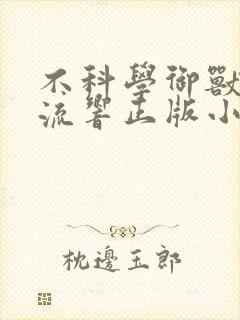 不科學御獸
流響正版小
枕邊玉郎